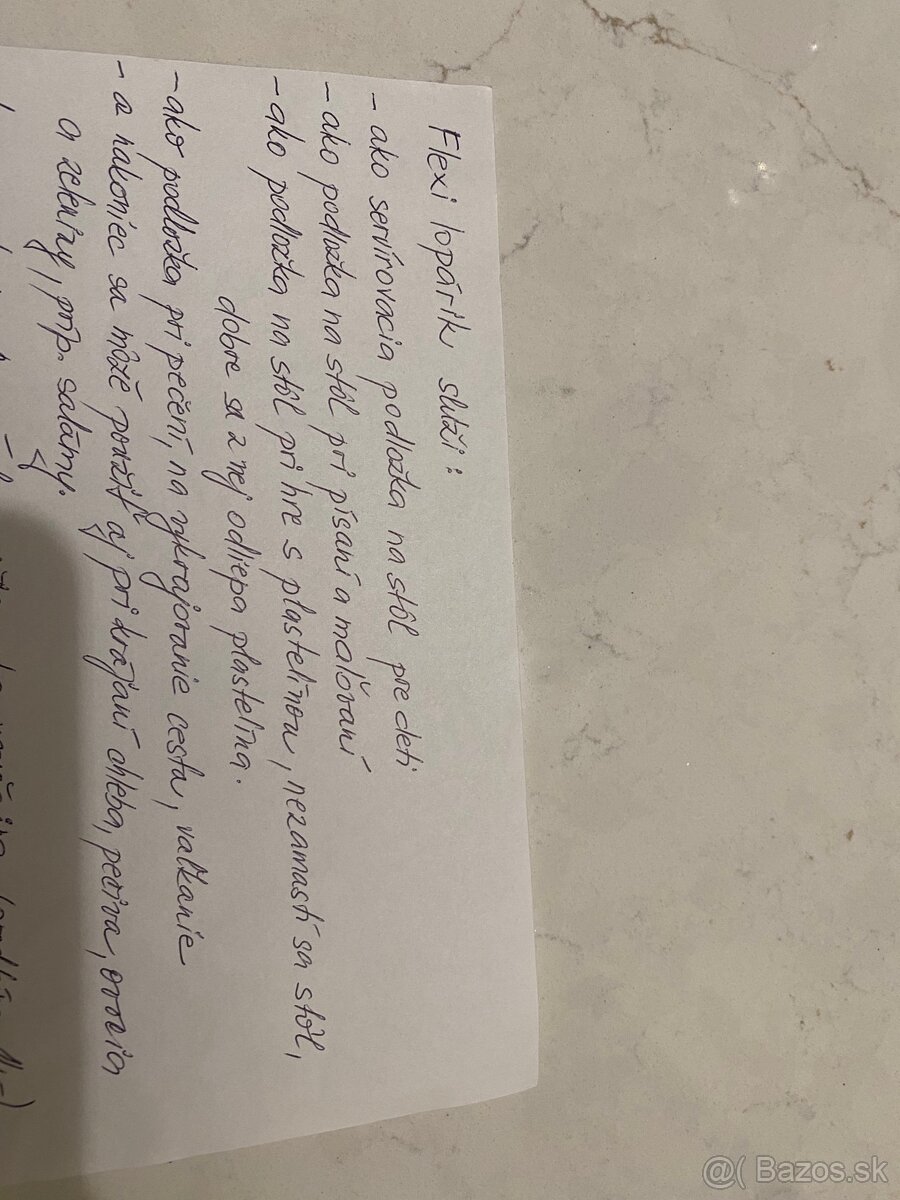 Flexi lopárik slúži:
- ako servírovacia podložka na stôl pre deti
- ako podložka na stôl pri písaní a maľovaní
- ako podložka na stôl pri hre s plastelínou, nezamastí sa stôl,
dobre sa z nej odliepa plastelína.
- ako podložka pri pečení, na vykrajovanie cesta, vaľkanie
- a nakoniec sa môže použiť aj pri krájaní chleba, pečiva, ovocia
a zeleniny, príp. salámy.
@( Bazos.sk